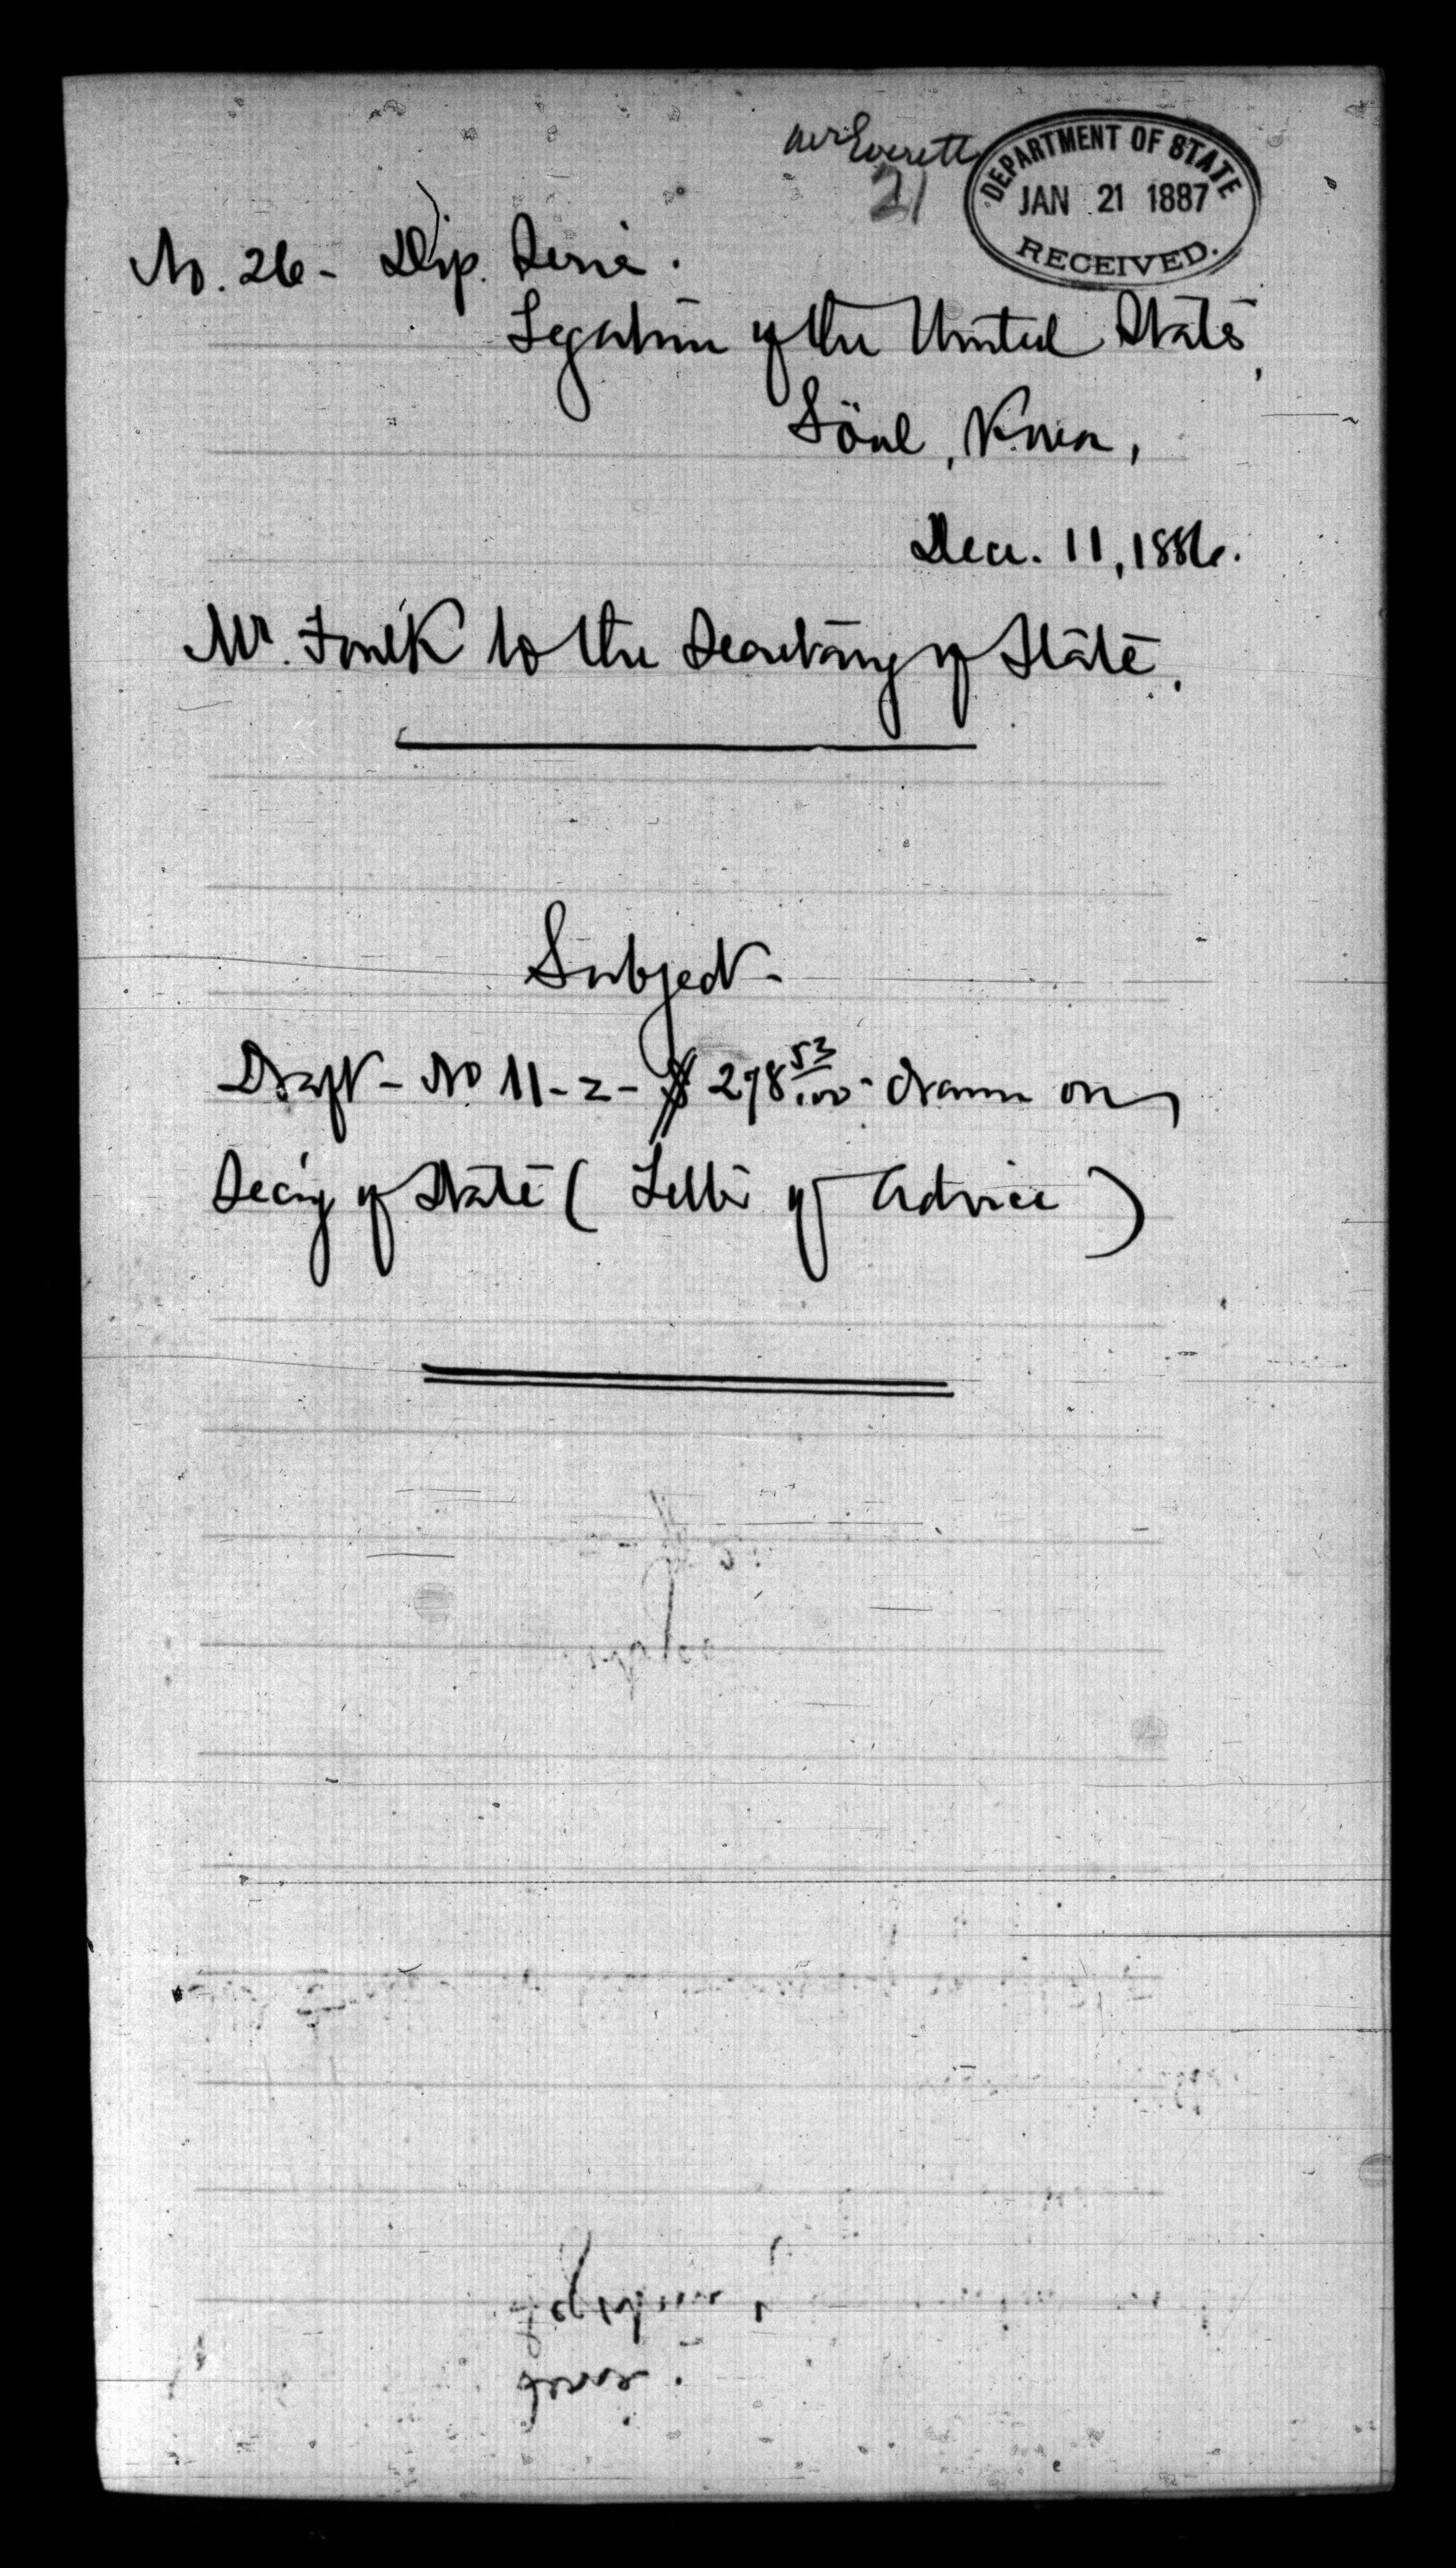 Mr Everett
21
DEPARTMENT OF STATE
JAN 21 1887
RECEIVED.
No. 26 - Dip. Serie.
Legation of the United States,
Söul, Korea,
Dec. 11, 1886.
Mr. Foulk to the Secretary of State.
Subject -
Draft - No 11 - 2 - $ 278 53/100 - drawn on
Sec'y of State ( Letter of Advice )